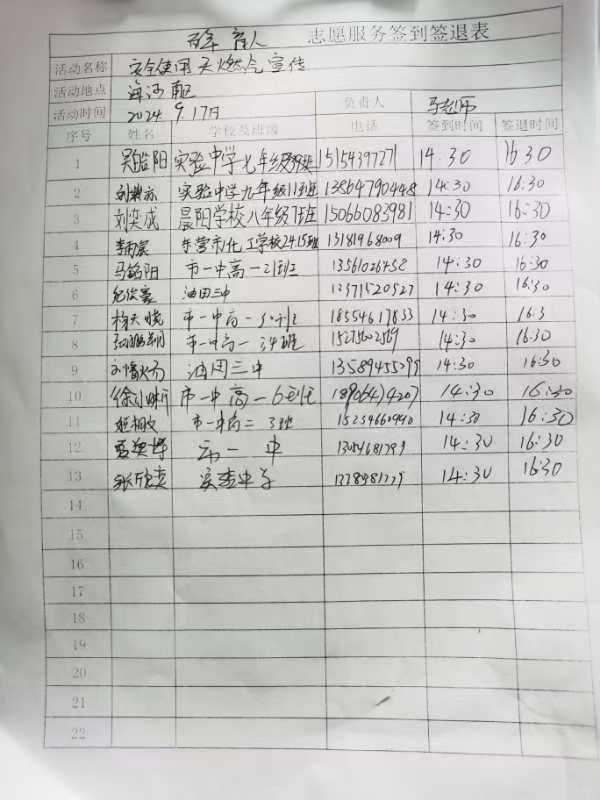 百年育人 志愿服务签到签退表
活动名称 安全使用天燃气宣传
活动地点
活动时间 2024 9.17日 负责人 马老师
序号 姓名 学校及班级 电话 签到时间 签退时间
1 吴皓阳 实验中学七年级 班 15154397271 14:30 16:30
2 实验中学九年级11班 13864790448 14:30 16:30
3 刘奕成 晨阳学校八年级7班 15066083981 14:30 16:30
4 东营市化工学校2415班 13181968009 14:30 16:30
5 马铭阳 市一中高一21班 13561026458 14:30 16:30
6 油田三中 14:30 16:30
7 杨天晓 市一中高一 班 18554617833 14:30 16:3
8 市一中高一34班 15275602569 14:30 16:30
9 油田三中 13589455299 14:30 16:30
10 徐小 市一中高一6 18906474207 14:30 16:30
11 市一中高二3班 14:30 16:30
12 市一中 14:30 16:30
13 中学 14:30 16:30
14
15
16
17
18
19
20
21
22